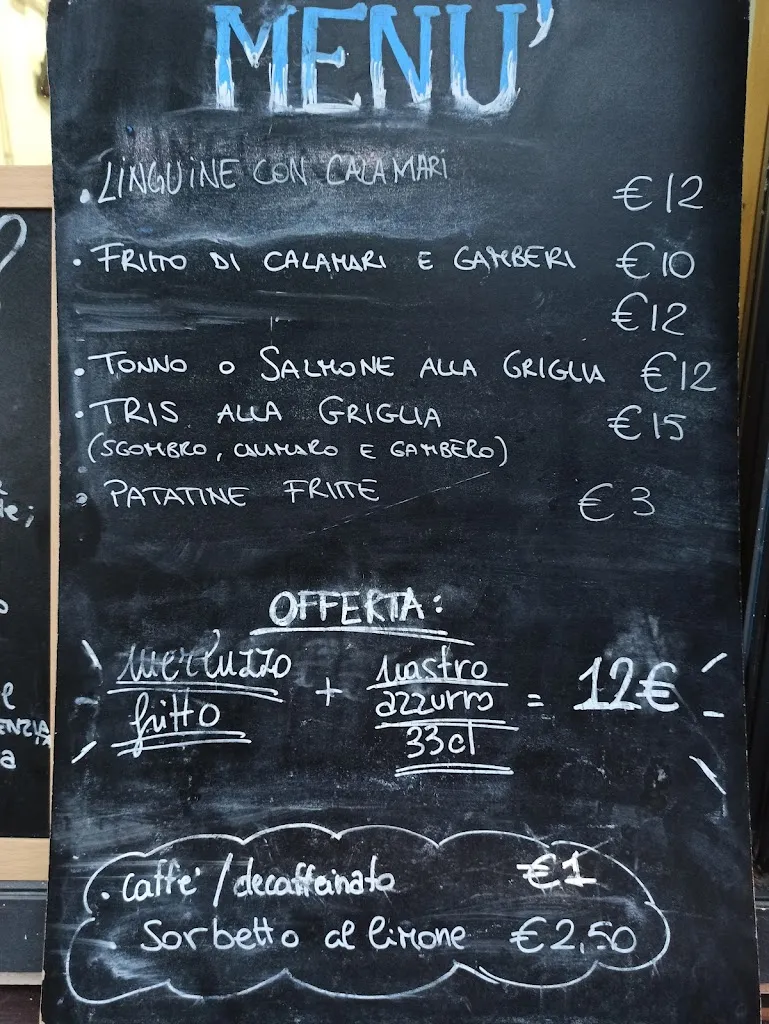 MENU'
• LINGUINE CON CALAMARI €12
• FRITTO DI CALAMARI E GAMBERI €10
€12
• TONNO O SALMONE ALLA GRIGLIA €12
• TRIS ALLA GRIGLIA €15
(SGOMBRO, CALAMARO E GAMBERO)
• PATATINE FRITTE €3
OFFERTA:
merluzzo fritto + nastro azzurro 33cl = 12€
• caffe' / decaffeinato €1
Sorbetto al limone €2,50
ENZIA